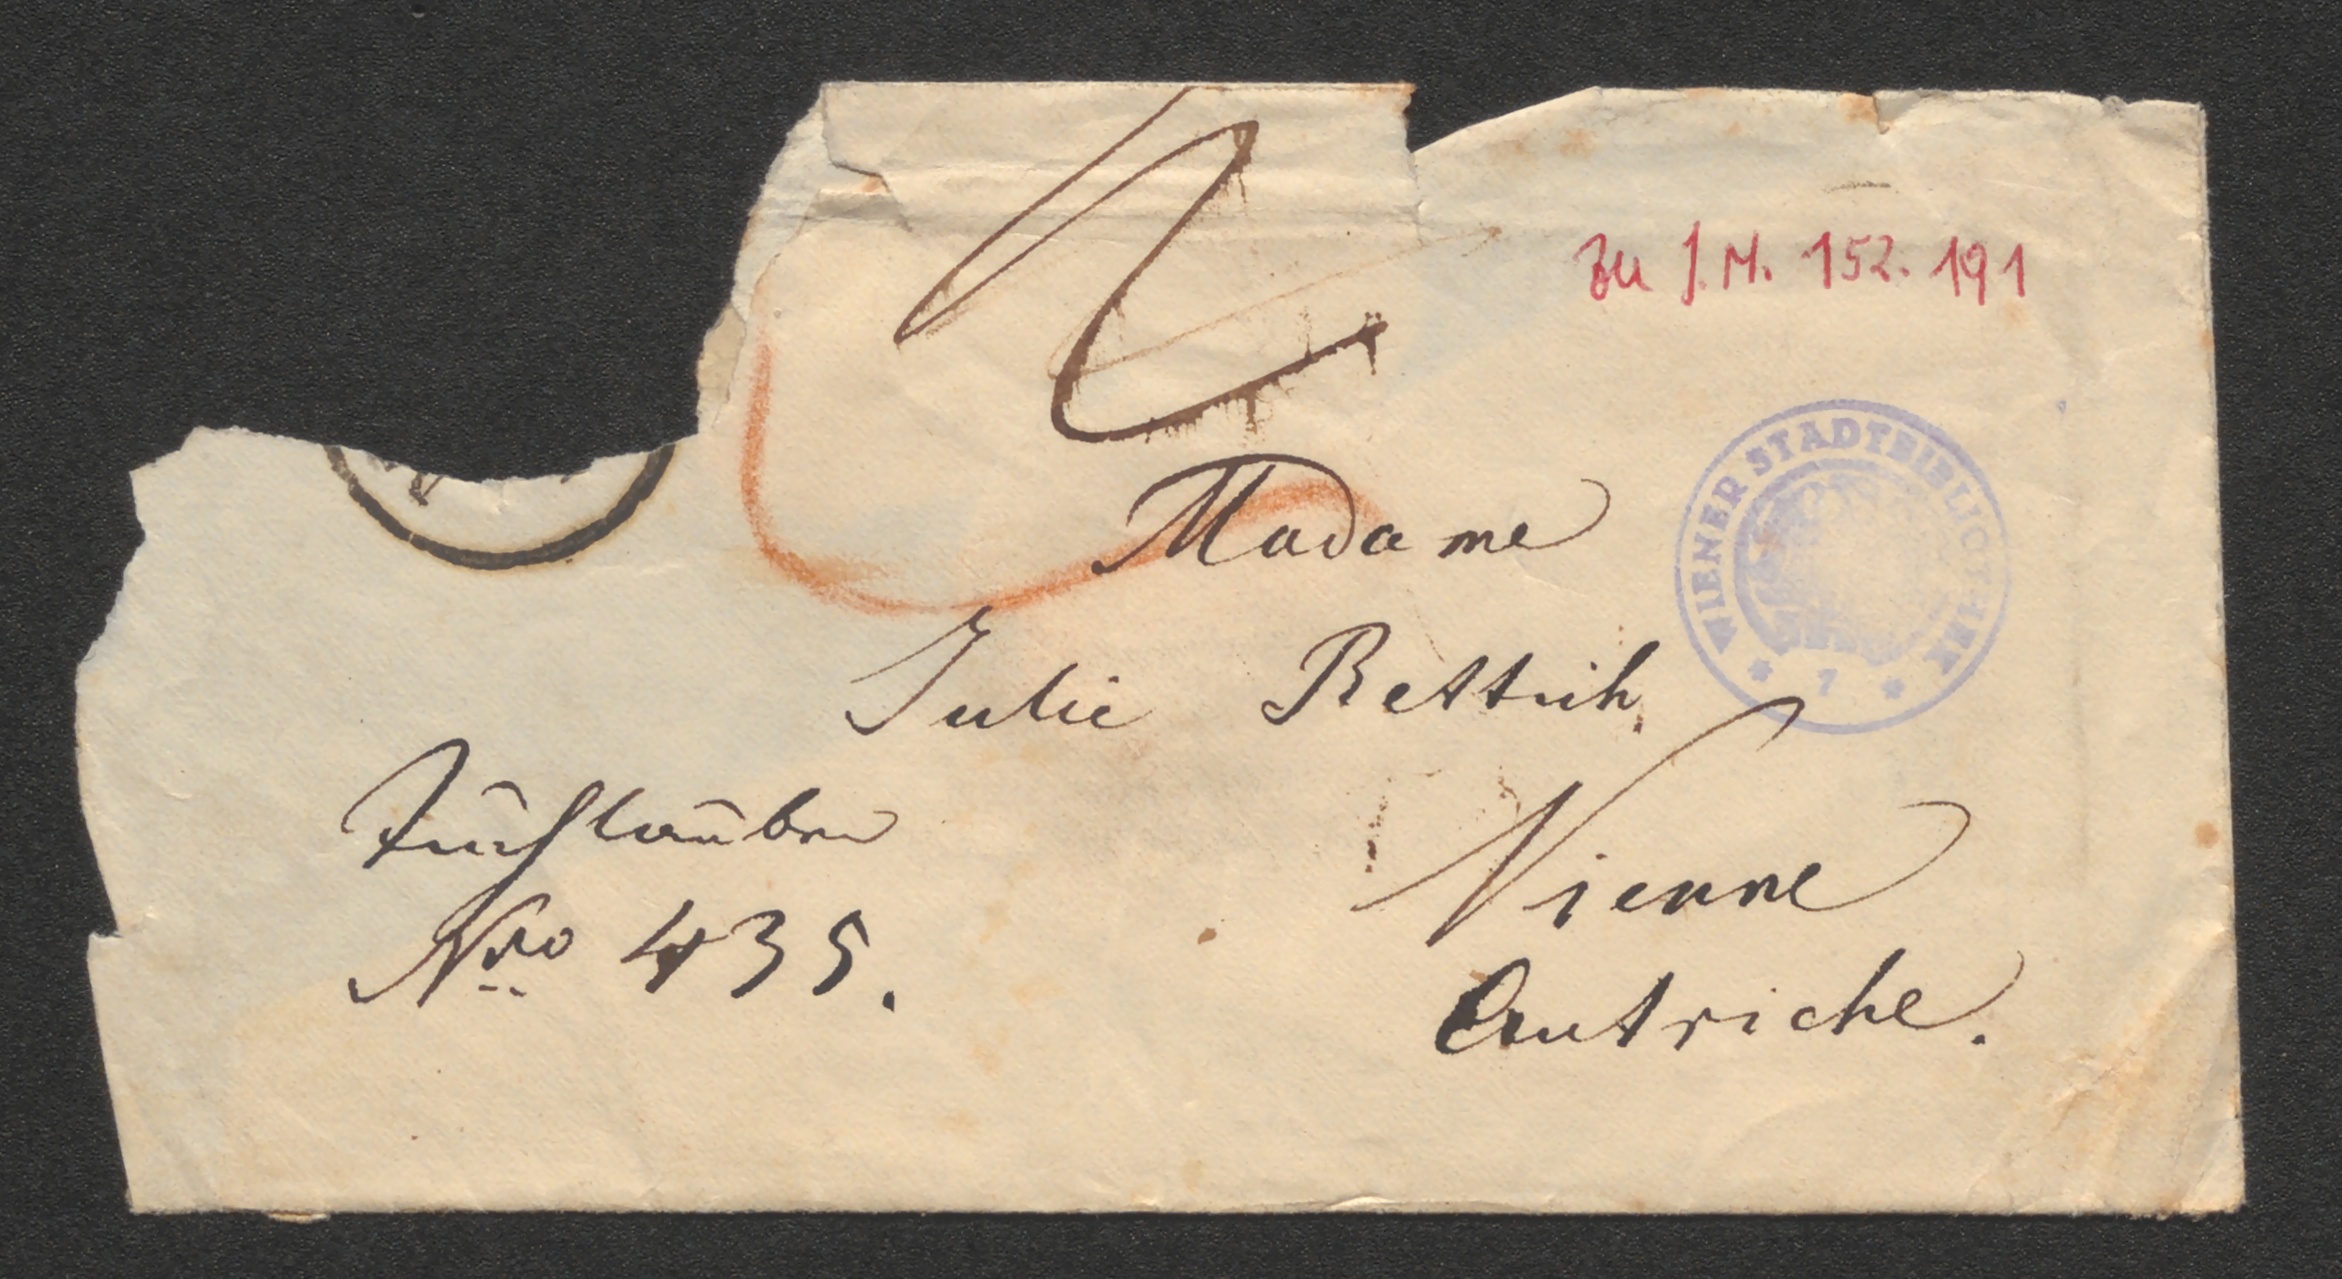 Zu J.N. 152.191
WIENER STADTBIBLIOTHEK
* 7 *
Madame
Julie Rettich,
Tuchlauben
Nro 435.
Vienne
Autriche.